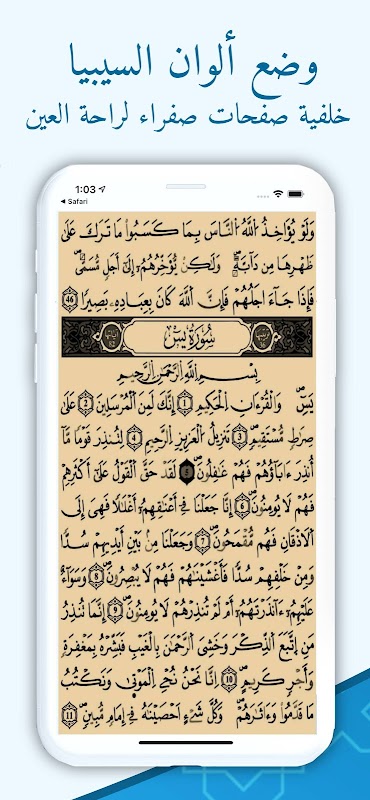 وضع ألوان السيبيا
خلفية صفحات صفراء لراحة العين
1:03
◀ Safari
وَلَوْ يُؤَاخِذُ اُللَّهُ اُلنَّاسَ بِمَا كَسَبُواْ مَا تَرَكَ عَلَىٰ
ظَهْرِهَا مِن دَآبَّةٍ وَلَٰكِنْ يُؤَخِّرُهُمُۥٓ إِلَىٰٓ أَجَلٍ مُّسَمًّى
فَإِذَا جَآءَ اجَلُهُمْ فَإِنَّ اَللَّهَ كَانَ بِعِبَادِهِۦ بَصِيراً 46
سُورَةُ يسٓ
بِسْمِ اِللَّهِ اِلرَّحْمَٰنِ اِلرَّحِيمِ
يسٓ وَالْقُرْءَانِ اِلْحَكِيمِ 1 إِنَّكَ لَمِنَ اَلْمُرْسَلِينَ 2 عَلَىٰ
صِرَٰطٍ مُّسْتَقِيمٍ 3 تَنزِيلُ اُلْعَزِيزِ اِلرَّحِيمِ 4 لِتُنذِرَ قَوْماً مَّا
أُنذِرَ ءَابَآؤُهُمْ فَهُمْ غَٰفِلُونَ 5 لَقَدْ حَقَّ اَلْقَوْلُ عَلَىٰٓ أَكْثَرِهِمْ
فَهُمْ لَا يُومِنُونَ 6 إِنَّا جَعَلْنَا فِىٓ أَعْنَٰقِهِمُۥٓ أَغْلَٰلاً فَهِىَ إِلَى
اَلَاذْقَانِ فَهُم مُّقْمَحُونَ 7 وَجَعَلْنَا مِنۢ بَيْنِ أَيْدِيهِمْ سُدّاً
وَمِنْ خَلْفِهِمْ سُدّاً فَأَغْشَيْنَٰهُمْ فَهُمْ لَا يُبْصِرُونَ 8 وَسَوَآءٌ
عَلَيْهِمُۥٓ ءَآنذَرْتَهُمُۥٓ أَمْ لَمْ تُنذِرْهُمْ لَا يُومِنُونَ 9 إِنَّمَا تُنذِرُ
مَنِ اِتَّبَعَ اَلذِّكْرَ وَخَشِىَ اَلرَّحْمَٰنَ بِالْغَيْبِ فَبَشِّرْهُ بِمَغْفِرَةٍ
وَأَجْرٍ كَرِيمٍ 10 اِنَّا نَحْنُ نُحْىِ اِلْمَوْتَىٰ وَنَكْتُبُ
مَا قَدَّمُواْ وَءَاثَٰرَهُمْ وَكُلَّ شَىْءٍ اَحْصَيْنَٰهُ فِىٓ إِمَامٍ مُّبِينٍ 11